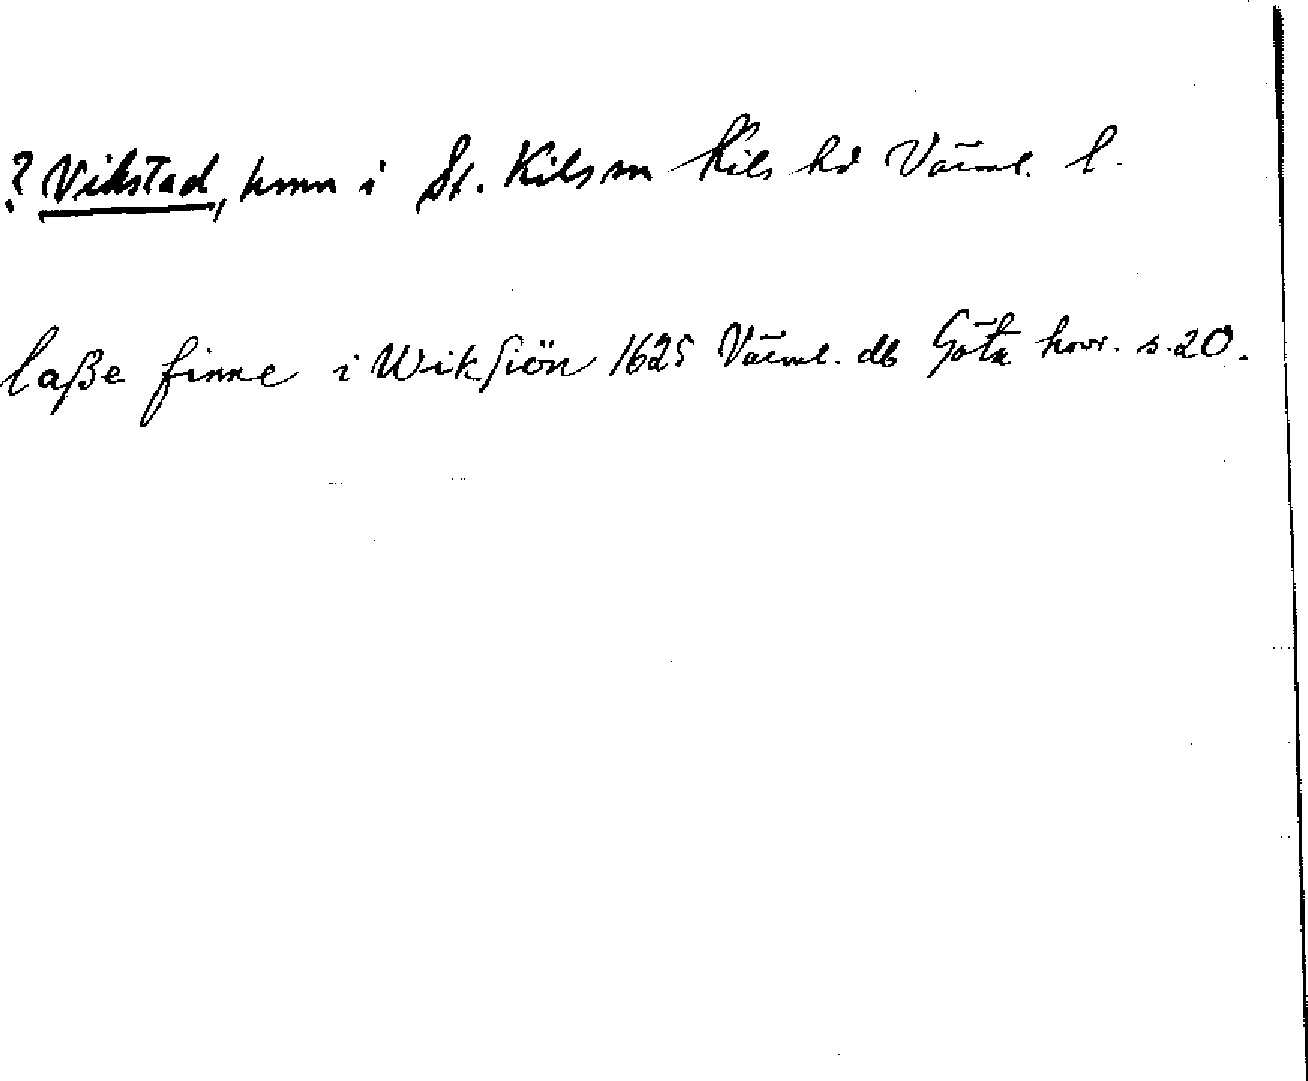 ? Vikstad, hmn i St. Kils sn Kils hd Värml. l.
laße finne i Wiksiön 1625 Värml. db Göta hovr. s. 20.